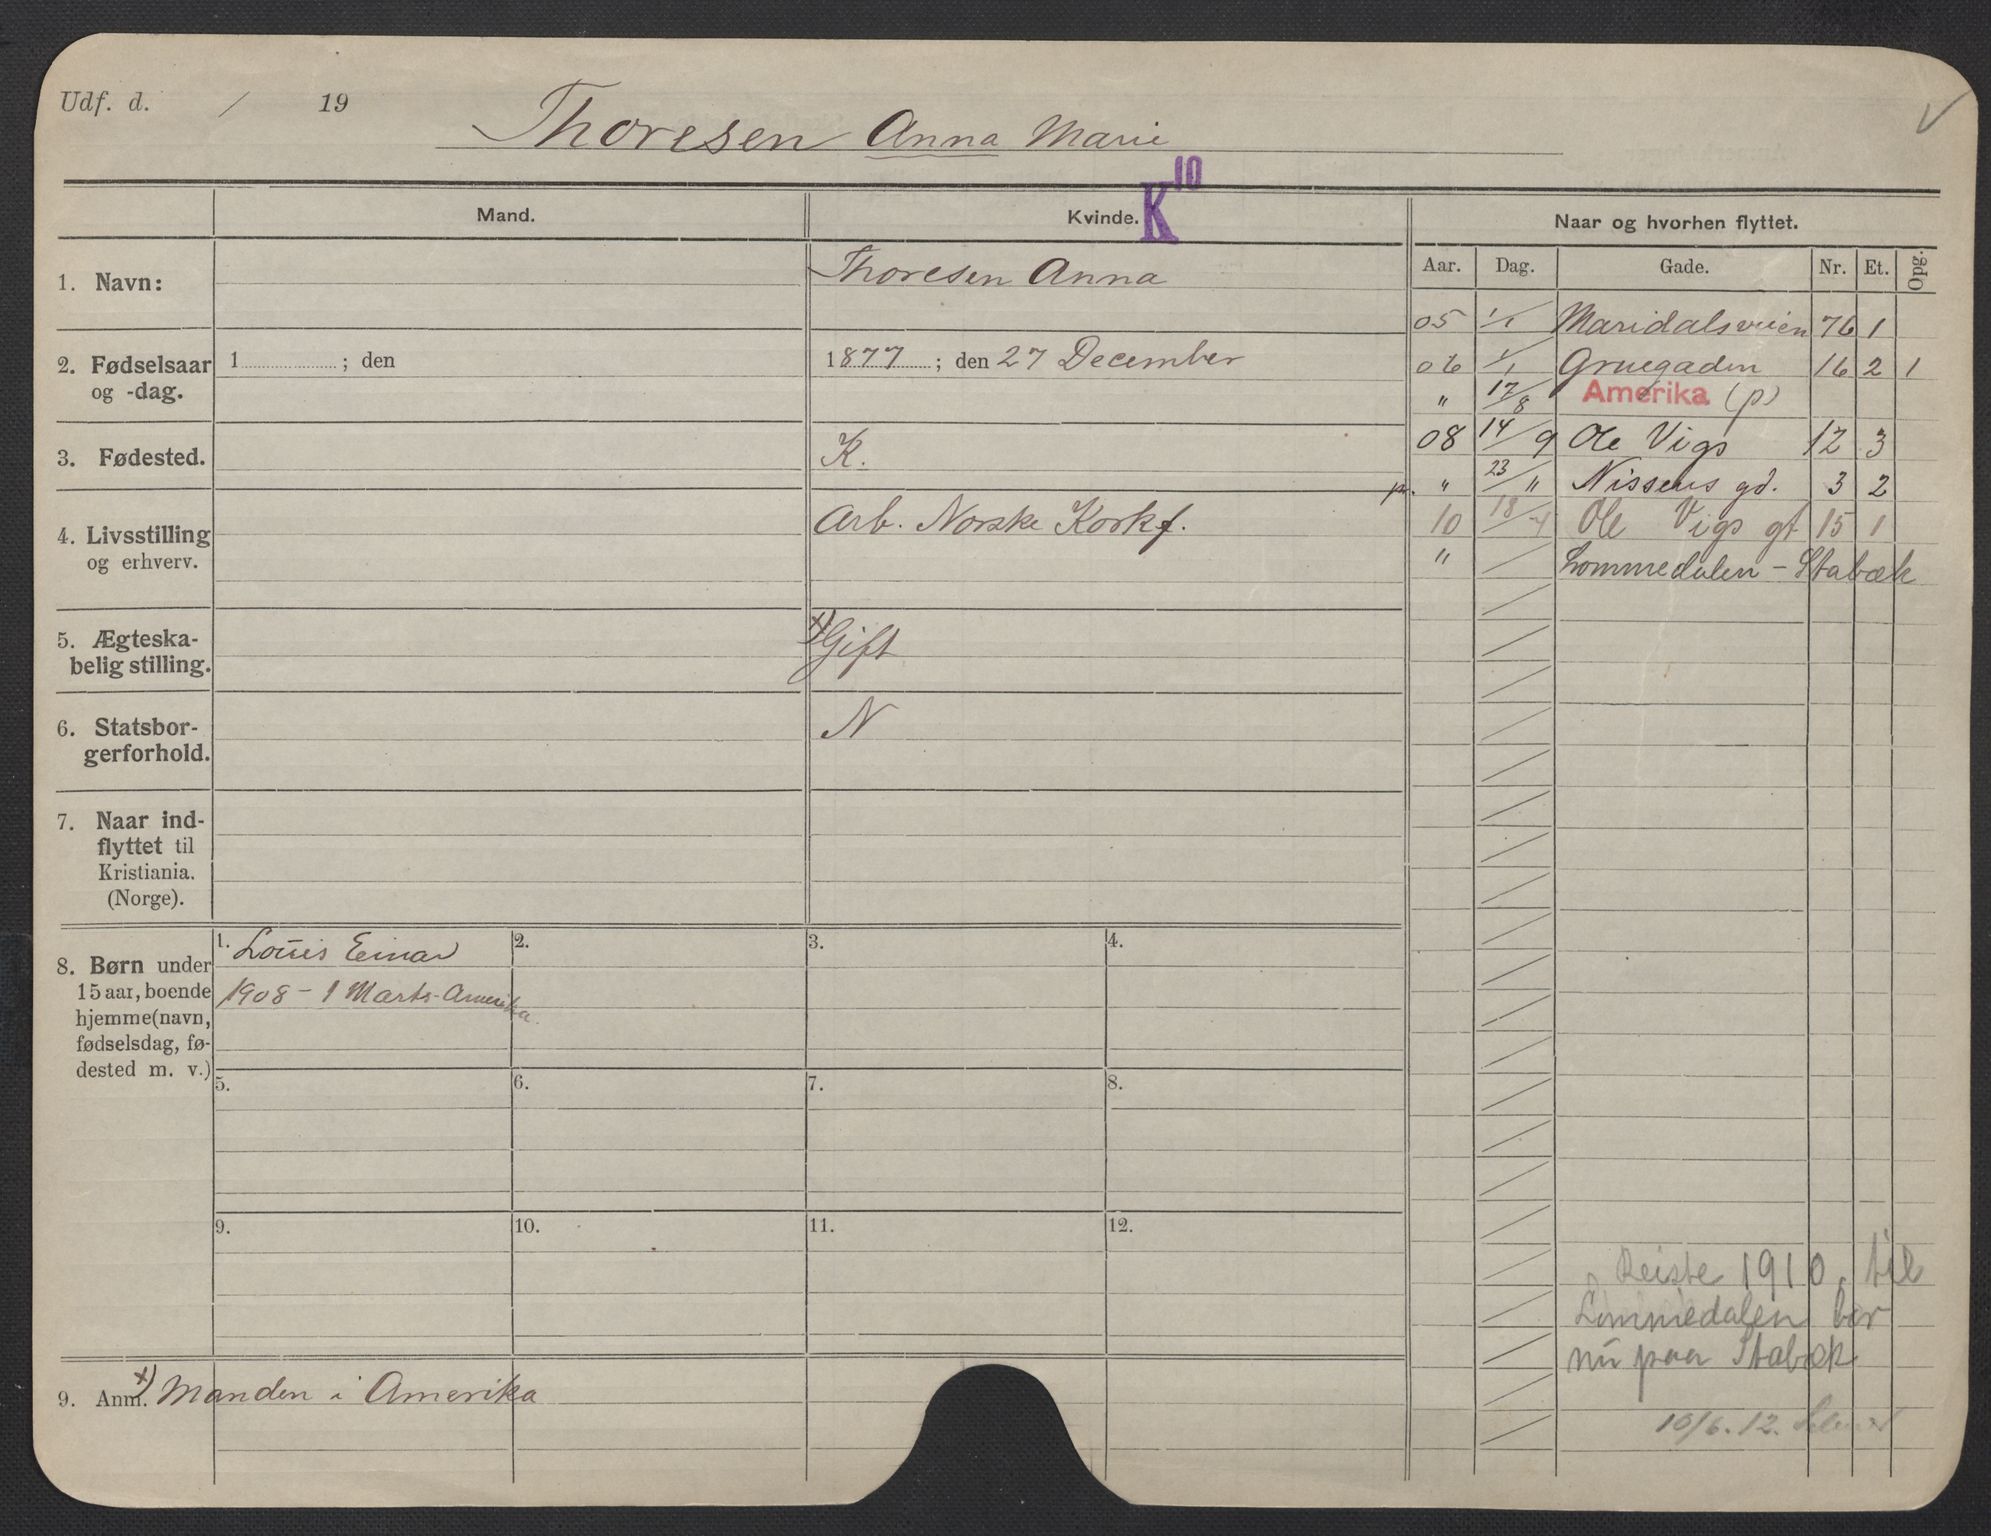 Udf. d. / 19
Thoresen Anna Marie
K 10
Mand. Kvinde. Naar og hvorhen flyttet.
Aar. Dag. Gade. Nr. Et. Opg.
1. Navn:
Thoresen Anna
2. Fødselsaar
og -dag.
1 ; den
1877 ; den 27 December
3. Fødested.
K.
4. Livsstilling
og erhverv.
Arb. Norske Korkf.
5. Ægteska-
belig stilling.
x) Gift
6. Statsbor-
gerforhold.
N
7. Naar ind-
flyttet til
Kristiania.
(Norge).
8. Børn under
15 aar, boende
hjemme (navn,
fødselsdag, fø-
dested m. v.)
1. Louis Einar
1908 - 1 Marts - Amerika.
2.
3.
4.
5.
6.
7.
8.
9.
10.
11.
12.
9. Anm. x) Manden i Amerika
05 1/1 Maridalsveien 76 1
06 1/1 Gruegaden 16 2 1
" 17/8 Amerika (p)
08 14/9 Ole Vigs 12 3
p. " 23/" Nissens gd. 3 2
10 18/4 Ole Vigs gt 15 1
" / Lommedalen - Stabæk
Reiste 1910 til
Lommedalen bor
nu paa Stabæk
10/6.12.